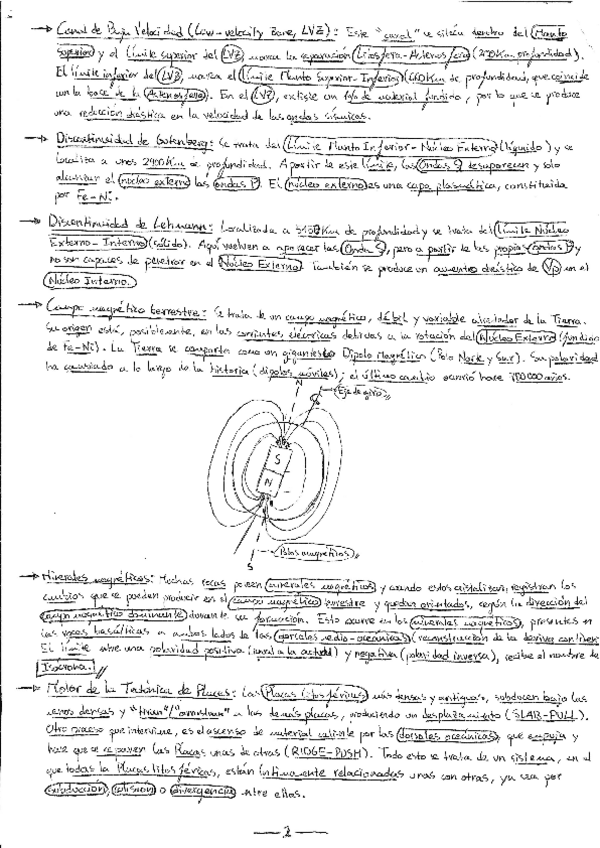 → Canal de Baja Velocidad (Low-velocity Zone, LVZ): Este "canal" se sitúa dentro del Manto
Superior y el límite superior del LVZ marca la separación Litosfera-Astenosfera (
km profundidad).
El límite inferior del LVZ, marca el límite Manto Superior-Inferior (
km de profundidad), que coincide
con la base de la Astenosfera. En el LVZ, existe un
de material fundido, por lo que se produce
una reducción drástica en la velocidad de las ondas sísmicas.
→ Discontinuidad de Gutenberg: Se trata del límite Manto Inferior-Núcleo Externo (líquido) y se
localiza a unos 2900 km de profundidad. A partir de este límite, las Ondas S desaparecen y solo
alcanzan el núcleo externo las ondas P. El núcleo externo es una capa plasmática, constituida
por Fe-Ni.
→ Discontinuidad de Lehmann: Localizada a 5150 km de profundidad y se trata del límite Núcleo
Externo-Interno (sólido). Aquí vuelven a aparecer las Ondas S, pero a partir de las propias Ondas P y
no son capaces de penetrar en el Núcleo Externo. También se produce un aumento drástico de Vp en el
Núcleo Interno.
→ Campo magnético terrestre: Se trata de un campo magnético, débil y variable alrededor de la Tierra.
Su origen está, posiblemente, en las corrientes eléctricas debidas a la rotación del Núcleo Externo (fundido
de Fe-Ni). La Tierra se comporta como un gigantesco Dipolo Magnético (Polo Norte y Sur). Su polaridad
ha cambiado a lo largo de la historia (dipolos móviles); el último cambio ocurrió hace
000 años.
N
Eje de giro
S
N
Polos magnéticos
S
→ Minerales magnéticos: Muchas rocas poseen minerales magnéticos y cuando estos cristalizan, registran los
cambios que se pueden producir en el campo magnético terrestre y quedan orientados, según la dirección del
campo magnético dominante durante su formación. Esto ocurre en los minerales magnéticos, presentes en
las rocas basálticas a ambos lados de las dorsales medio-oceánicas (reconstrucción de la deriva continental).
El límite entre una polaridad positiva (igual a la actual) y negativa (polaridad inversa), recibe el nombre de
Isócrona.
→ Motor de la Tectónica de Placas: Las Placas litosféricas más densas y antiguas, subducen bajo las
menos densas y "tiran"/"arrastran" a las demás placas, produciendo un desplazamiento (SLAB-PULL).
Otro proceso que interviene, es el ascenso de material caliente por las dorsales oceánicas, que empuja y
hace que se separen las Placas unas de otras (RIDGE-PUSH). Todo esto se trata de un sistema, en el
que todas la Placas litosféricas, están íntimamente relacionadas unas con otras, ya sea por
subducción, colisión o divergencia entre ellas.